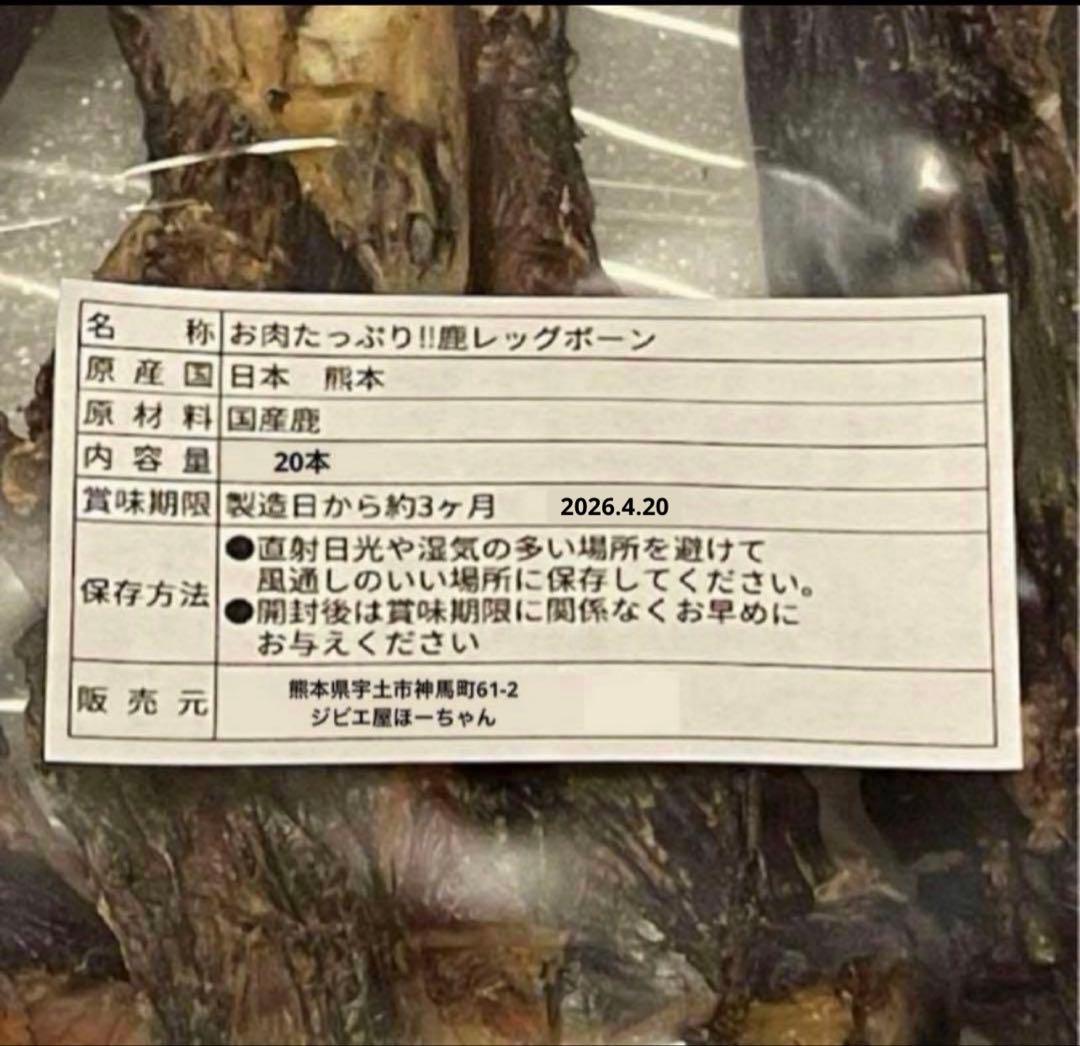 名称 お肉たっぷり!!鹿レッグボーン
原産国 日本 熊本
原材料 国産鹿
内容量 20本
賞味期限 製造日から約3ヶ月 2026.4.20
保存方法 ●直射日光や湿気の多い場所を避けて
風通しのいい場所に保存してください。
●開封後は賞味期限に関係なくお早めに
お与えください
販売元 熊本県宇土市神馬町61-2
ジビエ屋ほーちゃん